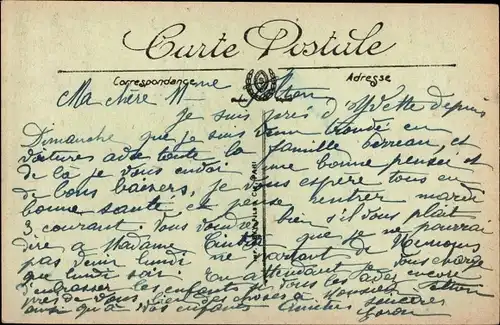 Carte Postale
Correspondance
Adresse
Ma chère Mme
je suis près d'Yvette depuis
Dimanche que je suis venu en
voitures avec toute la famille et
de là je vous envoi une bonne pensée et
de bons baisers, je vous espère tous en
bonne santé et pense rentrer mardi
3 courant. Vous bien s'il vous plait
dire a Madame que je ne pourrai
pas venir lundi ne partant de
que lundi soir. En attendant je vous charge
d'embrasser les enfants pour tous les encore
près de vous bien des choses à Monsieur
ainsi qu'a vos enfants. Amitiés sincères